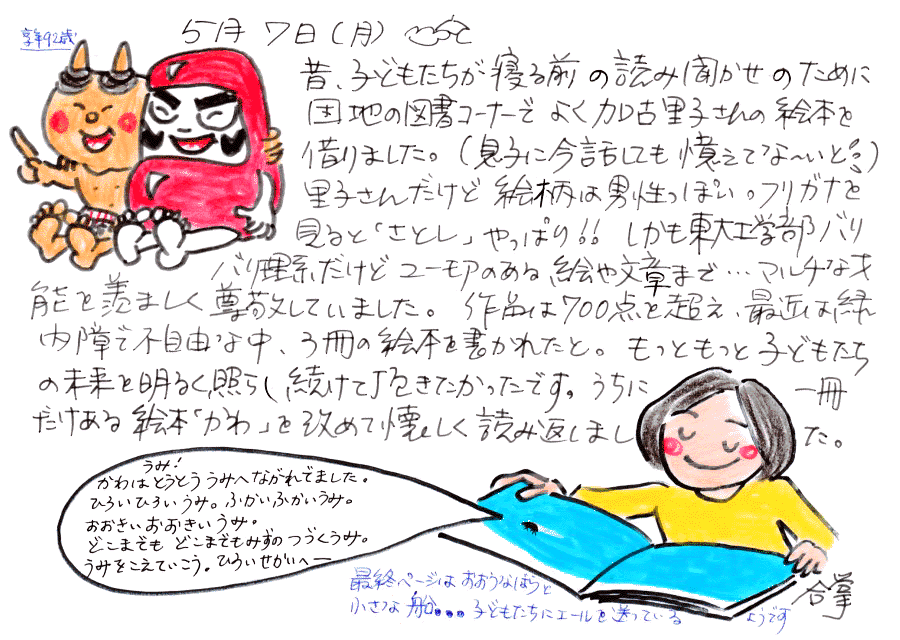 享年92歳
5月7日(月)
昔、子どもたちが寝る前の読み聞かせのために
団地の図書コーナーでよく加古里子さんの絵本を
借りました。(息子に今話しても憶えてな〜いと!)
里子さんだけど絵柄は男性っぽい。フリガナを
見ると「さとし」やっぱり!! しかも東大工学部バリ
バリ理系だけどユーモアのある絵や文章まで…マルチな才
能を羨ましく尊敬していました。作品は700点を超え、最近は緑
内障で不自由な中、3冊の絵本を書かれたと。もっともっと子どもたち
の未来を明るく照らし続けて頂きたかったです。うちに一冊
だけある絵本「かわ」を改めて懐しく読み返しました。
うみ!
かわはとうとううみへながれでました。
ひろいひろいうみ。ふかいふかいうみ。
おおきいおおきいうみ。
どこまでもどこまでもみずのつづくうみ。
うみをこえていこう。ひろいせかいへー
最終ページはおおうなばらと
小さな船...子どもたちにエールを送っているようです
合掌